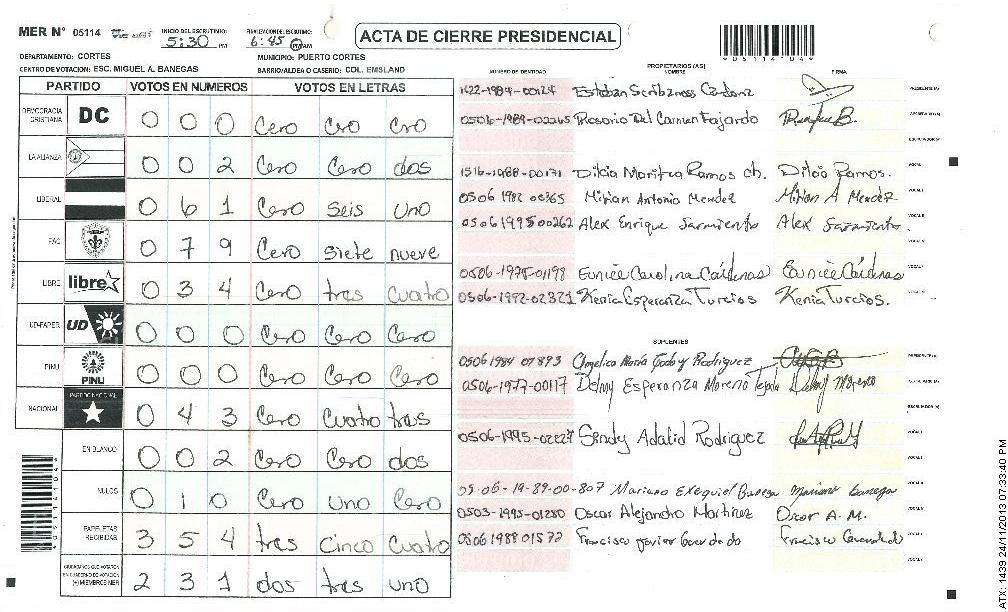 MER N° 05114
INICIO DEL ESCRUTINIO: 5:30 PM
FINALIZACION DEL ESCRUTINIO: 6:45 PM AM
ACTA DE CIERRE PRESIDENCIAL
*05114104*
DEPARTAMENTO: CORTES
MUNICIPIO: PUERTO CORTES
CENTRO DE VOTACION: ESC. MIGUEL A. BANEGAS
BARRIO/ALDEA O CASERIO: COL. EMSLAND
PARTIDO VOTOS EN NUMEROS VOTOS EN LETRAS
DEMOCRACIA CRISTIANA DC 0 0 0 Cero Cro Cro
LA ALIANZA 0 0 2 Cero Cero dos
LIBERAL 0 6 1 Cero seis uno
PAC 0 7 9 Cero siete nueve
LIBRE libre 0 3 4 Cero tres cuatro
UD-FAPER UD 0 0 0 Cero Cero Cero
PINU PINU 0 0 0 Cero Cero Cero
NACIONAL PARTIDO NACIONAL 0 4 3 Cero cuatro tres
EN BLANCO 0 0 2 Cero Cero dos
NULOS 0 1 0 Cero uno Cero
PAPELETAS RECIBIDAS 3 5 4 tres cinco cuatro
CIUDADANOS QUE VOTARON EN CUADERNO DE VOTACION (+) MIEMBROS MER 2 3 1 dos tres uno
NUMERO DE IDENTIDAD
PROPIETARIOS (AS)
NOMBRE
FIRMA
1622-1984-00124 Esteban PRESIDENTE (A)
0506-1989-02265 Rosario Del Carmen Fajardo SECRETARIO (A)
ESCRUTADOR (A)
1516-1988-00131 Dilcia Maritza Ramos ch. Dilcia Ramos. VOCAL I
0506 1982 00365 Mirian Antonia Mendez Mirian A Mendez
0506 1995 00262 Alex Enrique Sarmiento Alex Sarmiento
0506-1975-01198 Eunice Carolina Cárdenas Eunice Cárdenas
0506-1992-02321 Kenia Esperanza Turcios Kenia Turcios.
SUPLENTES
0506 1984 07893 Angelica María Godoy Rodriguez PRESIDENTE (A)
0506-1977-00117 Delmy Esperanza Moreno Tejeda Delmy Moreno SECRETARIO (A)
ESCRUTADOR (A)
0506-1995-02227 Sendy Adalid Rodriguez VOCAL I
0506-19-89-00-807 Mariano Exequiel Banega Mariano Banega
0503-1995-01280 Oscar Alejandro Martinez Oscar A. M.
0506 1988 01572 Francisco Javier
*05114104*
ATX: 1439 24/11/2013 07:33:40 PM